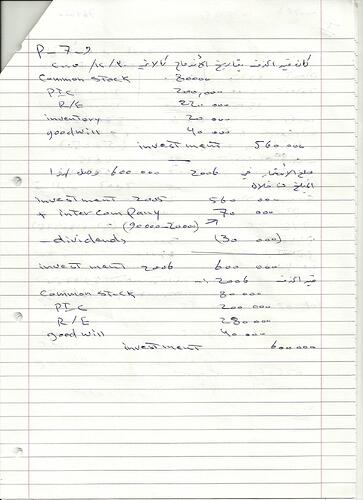 P_7_9
كان قيد الحذف بتاريخ الاندماج كالاتي ٢٠٠٥/١٢/٣٠
Common stock 80000
PIC 200,000
R/E 220 000
inventory 20 000
goodwill 40 000
investment 560 000
مبلغ الاستثمار في 2006 600 000 وصل لهذا
المبلغ من خلال
Investment 2005 560 000
+ intercompany 70 000
(90000-20000)
- dividends (30 000)
investment 2006 600 000
قيد الحذف 2006
Common stock 80 000
PIC 200 000
R/E 280 000
goodwill 40 000
investment 600000